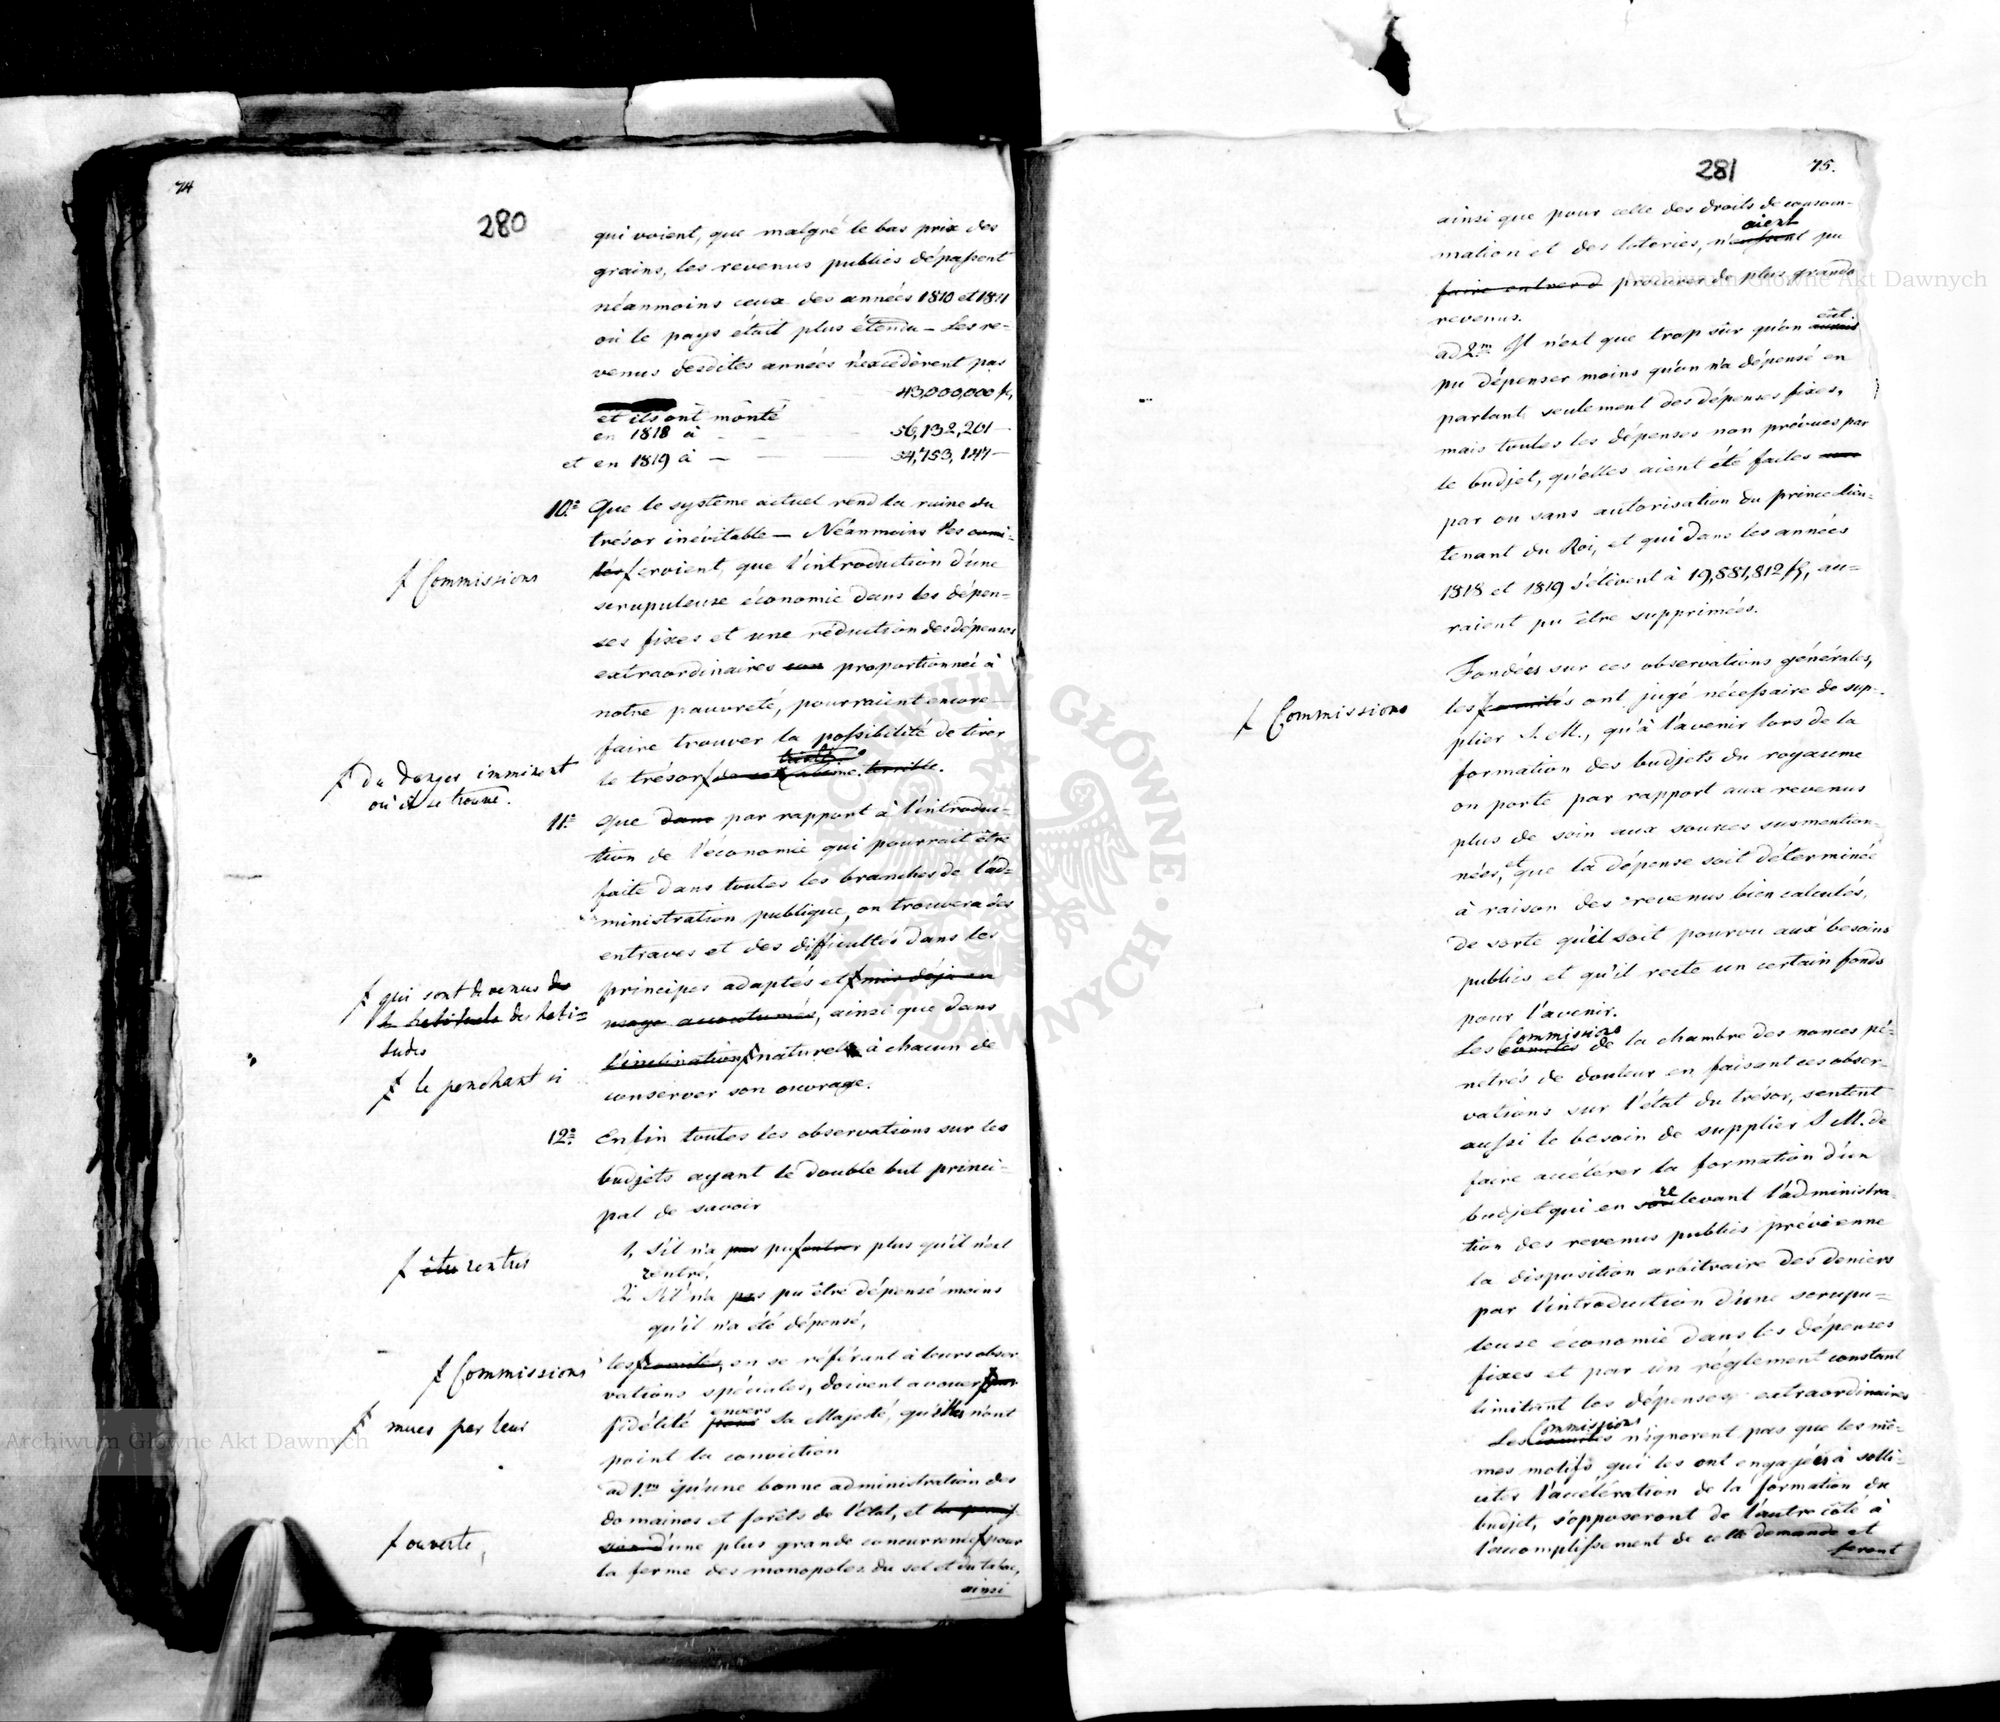 74
280
qui voient, que malgré le bas prix des
grains, les revenus publics dépassent
néanmoins ceux des années 1810 et 1811
où le pays était plus étendu — Les re-
venus desdites années n'excédèrent pas
43,000,000 fl,
et ils ont monté
en 1818 à — — 56,132,201 —
et en 1819 à — — 54,753,147 —
10.° Que le système actuel rend la ruine du
trésor inévitable — Néanmoins les comi-
tés seroient, que l'introduction d'une
ƒ Commissions
scrupuleuse économie dans les dépen-
ses fixes et une réduction des dépenses
extraordinaires proportionnée à
notre pauvreté, pourraient encore
faire trouver la possibilité de tirer
le trésor ƒ de cet abîme terrible.
ƒ du danger imminent
où il se trouve.
11.° Que dans par rapport à l'introduc-
tion de l'économie qui pourrait être
faite dans toutes les branches de l'ad-
ministration publique, on trouvera des
entraves et des difficultés dans les
principes adaptés et ƒ mis déjà en
usage accoutumés, ainsi que dans
ƒ qui sont devenus de
habituels des habi-
tudes
l'inclination ƒ naturel à chacun de
ƒ le penchant si
conserver son ouvrage.
12.° Enfin toutes les observations sur les
budjets ayant le double but princi-
pal de savoir
1, S'il n'a pas pu ƒ entrer plus qu'il n'est
rentré,
ƒ être rentré
2. S'il n'a pas pu être dépensé moins
qu'il n'a été dépensé,
les ƒ comités, en se référant à leurs obser-
ƒ Commissions
vations spéciales, doivent avouer ƒ par
fidélité pour envers Sa Majesté, qu'elles n'ont
ƒ mues par leur
point la conviction
ad 1.m qu'une bonne administration des
domaines et forêts de l'état, et la permis-
sion d'une plus grande concurrence ƒ pour
ƒ ouverte,
la ferme des monopoles du sel et du tabac,
ainsi
281
75.
ainsi que pour celle des droits de consom-
mation et des loteries, n'eussent aient pu
faire entrer d procurer de plus grands
revenus.
ad 2.m Il n'est que trop sûr qu'on eût
pu dépenser moins qu'on n'a dépensé en
partant seulement des dépenses fixes,
mais toutes les dépenses non prévues par
le budjet, qu'elles aient été faites
par ou sans autorisation du prince lieu-
tenant du Roi, et qui dans les années
1818 et 1819 s'élèvent à 19,881,812 fl, au-
raient pu être supprimées.
Fondées sur ces observations générales,
les ƒ comités ont jugé nécessaire de sup-
ƒ Commissions
plier S. M., qu'à l'avenir lors de la
formation des budjets du royaume
on porte par rapport aux revenus
plus de soin aux sources susmention-
nées, et que la dépense soit déterminée
à raison des revenus bien calculés,
de sorte qu'il soit pourvu aux besoins
publics et qu'il reste un certain fonds
pour l'avenir.
Les comités Commissions de la chambre des nonces pé-
nétrés de douleur en faisant ces obser-
vations sur l'état du trésor, sentent
aussi le besoin de supplier S. M. de
faire accélérer la formation d'un
budjet qui en relevant l'administra-
tion des revenus publics prévienne
la disposition arbitraire des deniers
par l'introduction d'une scrupu-
leuse économie dans les dépenses
fixes et par un réglement constant
limitant les dépenses extraordinaires
Les comités Commissions n'ignorent pas que les mê-
mes motifs qui les ont engagées à solli-
citer l'accélération de la formation du
budjet, s'opposeront de l'autre côté à
l'accomplissement de cette demande et
feront
Archiwum Główne Akt Dawnych
ARCHIWUM GŁÓWNE AKT DAWNYCH
Archiwum Główne Akt Dawnych